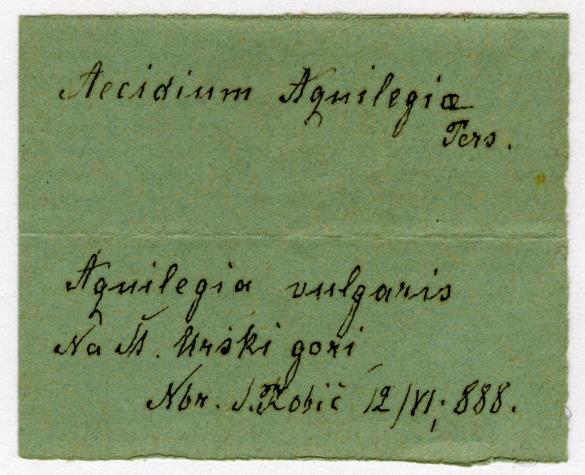 Aecidium Aquilegiæ
Pers.
Aquilegia vulgaris
Na Šl. Urški gori
Nbr. S. Robič 12/VI, 888.